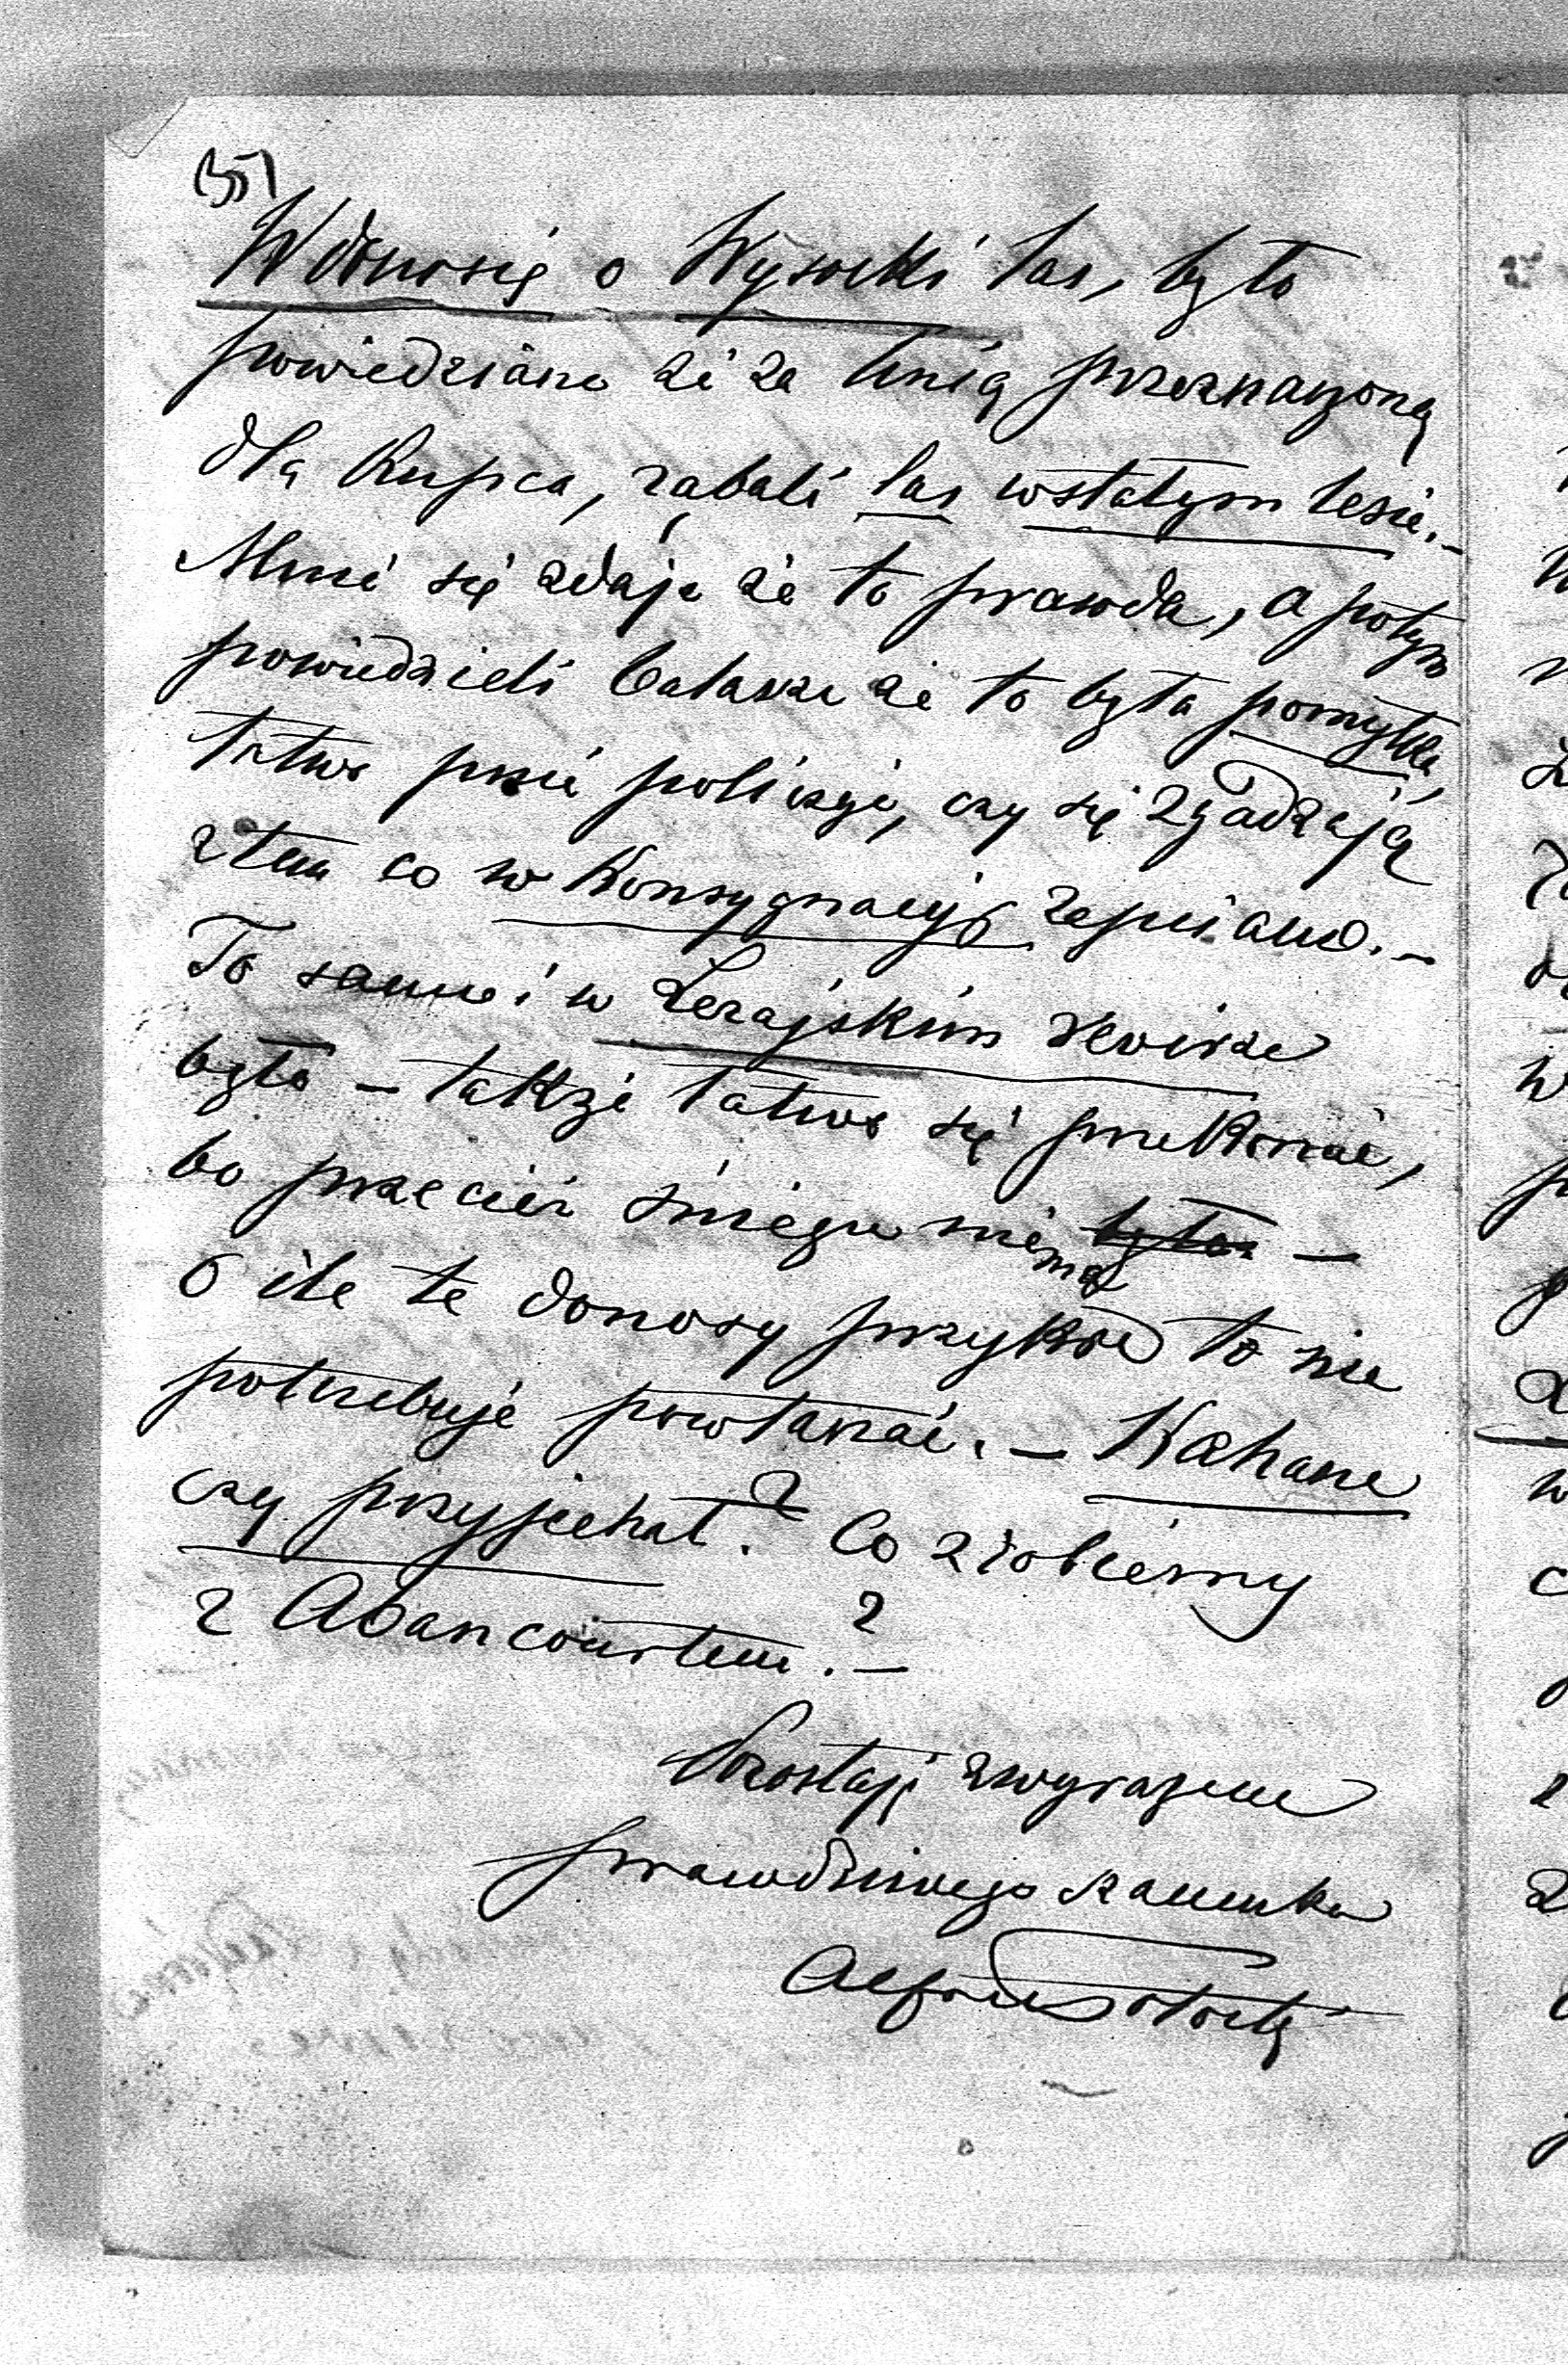 (35)
W donosię o Wysocki las, było
powiedziane że za linią przeznaczoną
dla kupca, rąbali las wstałym lesie. –
Mnie się zdaje że to prawda, a potym
powiedzieli Całasze że to była pomyłka,
łatwo pnie policzyć, czy się zgadzają
z tem co w Konsygnacyi zapisano. –
To samo i w Leżajskim rewirze
było – także łatwo się przekonać,
bo przecież śniegu nie było –
ma
o ile te donosy przykre to nie
potrzebuje powtarzać. – Kahane
czy przyjechał? Co zrobiemy
z Abancourtem? –
Pozostaję z wyrazem
prawdziwego szacunku
Alfons